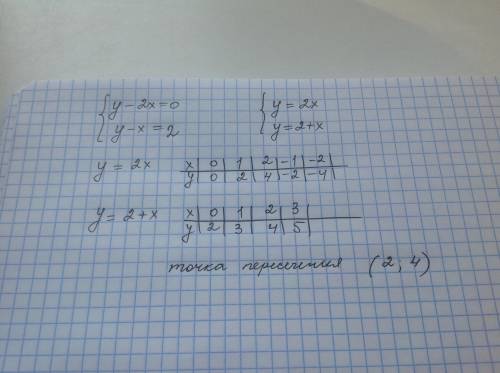 { y - 2x = 0 { y = 2x
{ y - x = 2 { y = 2 + x
y = 2x x | 0 | 1 | 2 | -1 | -2 |
y | 0 | 2 | 4 | -2 | -4 |
y = 2 + x x | 0 | 1 | 2 | 3 |
y | 2 | 3 | 4 | 5 |
точка пересечения (2, 4)